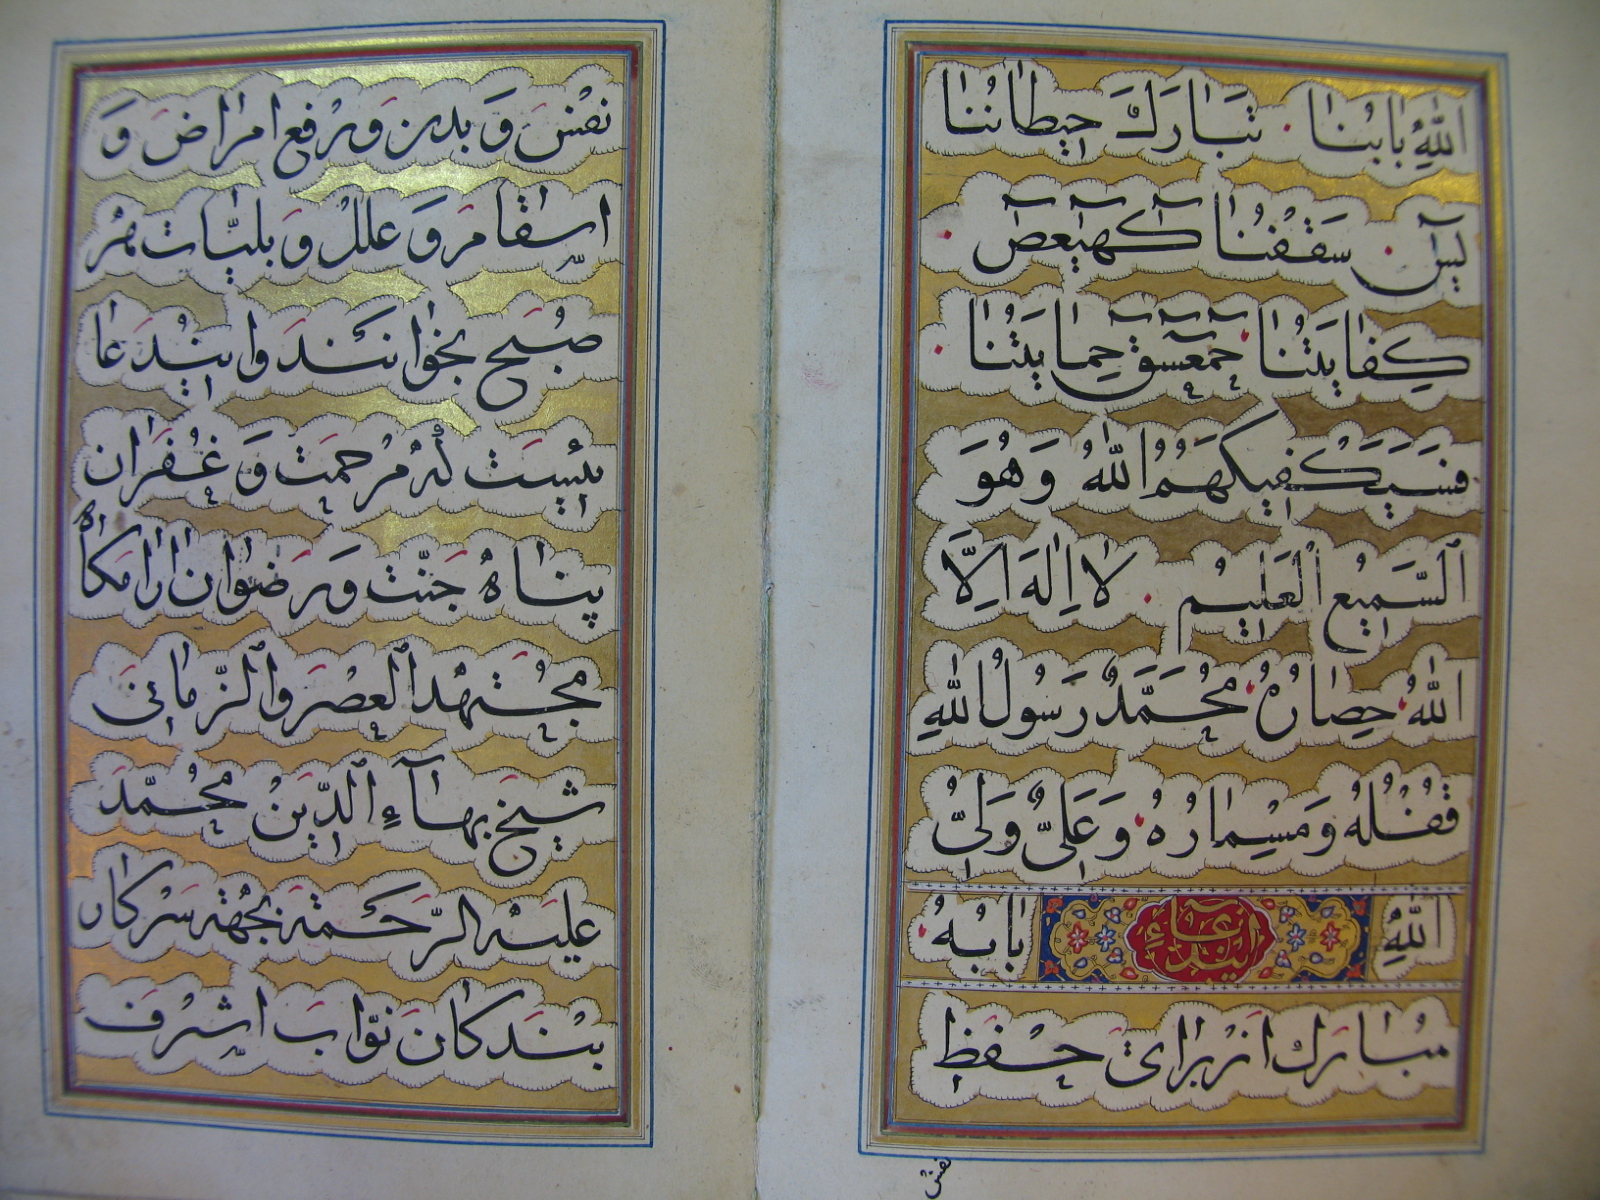 اللّٰهِ بَابُنَا تَبَارَكَ حِيطَانُنَا
يٓسٓ سَقْفُنَا كٓهٰيٰعٓصٓ
كِفَايَتُنَا حٰمٓعٓسٓقٓ حِمَايَتُنَا
فَسَيَكْفِيكَهُمُ اللّٰهُ وَهُوَ
السَّمِيعُ الْعَلِيمُ لَا اِلٰهَ اِلَّا
اللّٰهُ حِصَارُهُ مُحَمَّدٌ رَسُولُ اللّٰهِ
قُفْلُهُ وَمَسْمَارُهُ وَعَلِيٌّ وَلِيُّ
اللّٰهِ بَابُهُ
مُبَارَك از برای حِفْظِ
نفس
نَفْسْ وَ بدن و رفع امراض وَ
اسقام وَ علل وَ بلیّات هر
صُبح بخوانند و این دعا
ایست که مرحمت وَ غُفران
پناه جَنّت وَ رضوان ارامکاه
مُجتهد العصر و الزّمانی
شیخ بهآءِ الدّین مُحمّد
علیه الرّحمة بجهة سرکار
بندکان نوّاب اشرف